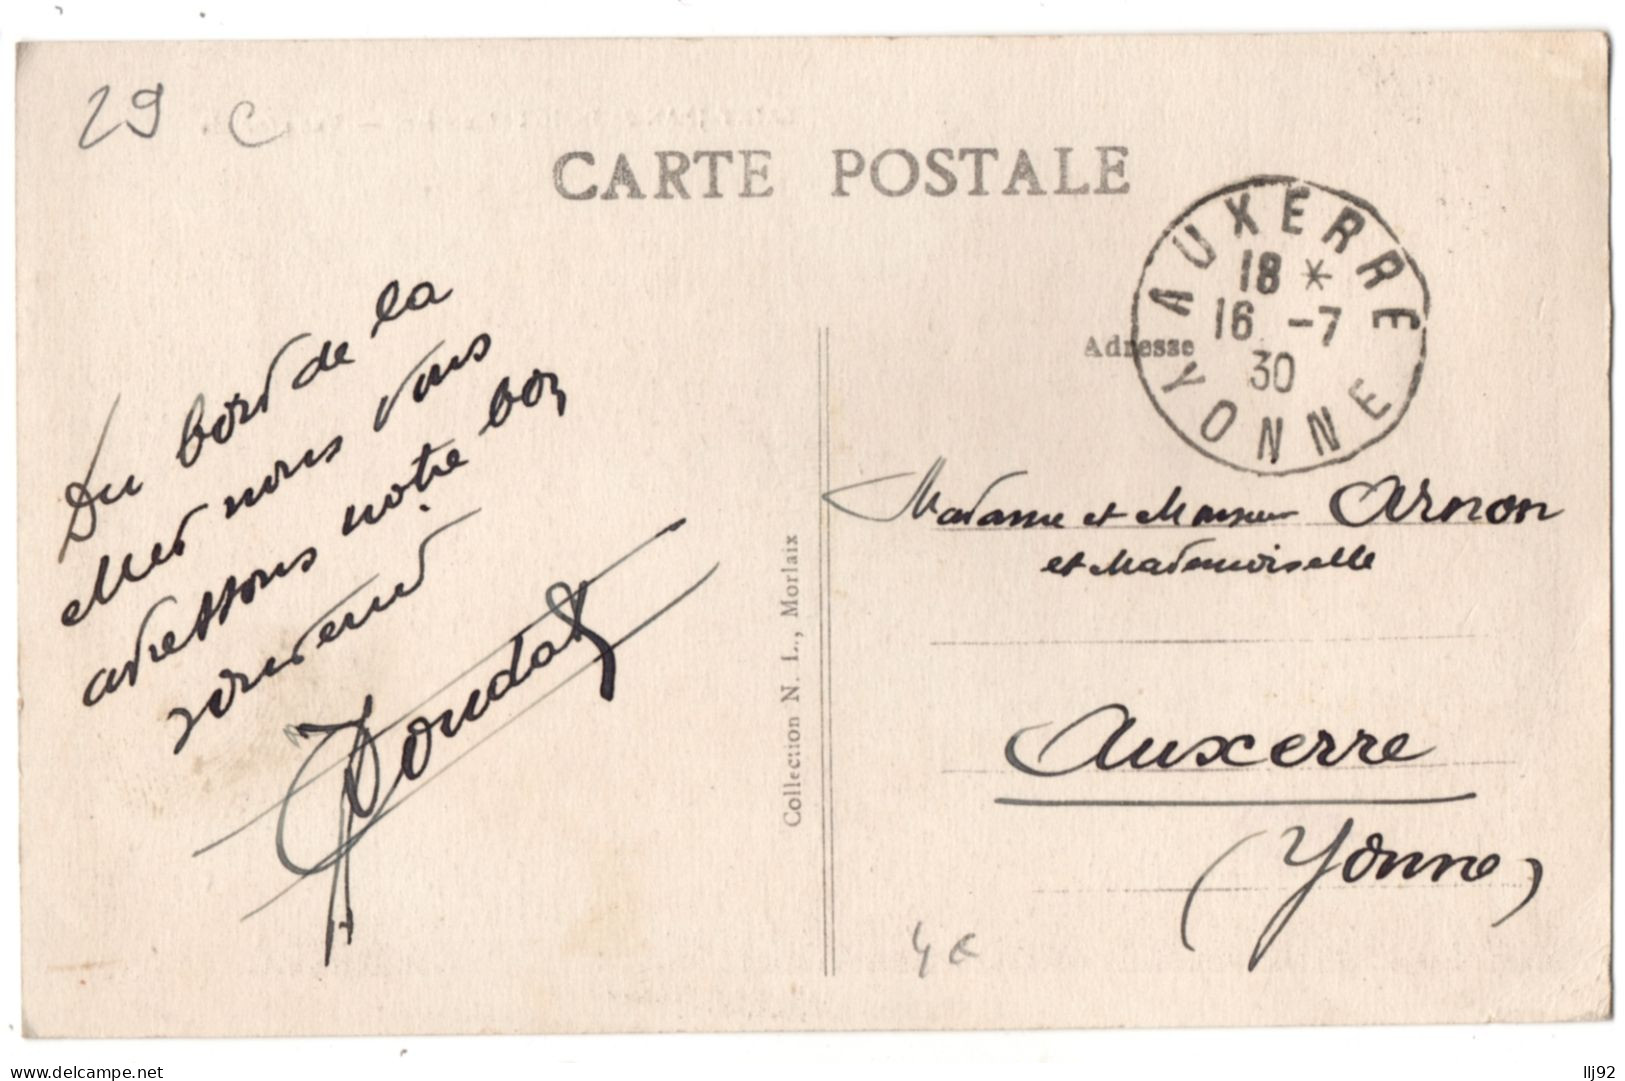 29 C
CARTE POSTALE
AUXERRE
18 *
16 -7
30
YONNE
Adresse
Du bord de la
Mer nous vous
adressons notre bon
souvenir
Collection N. L., Morlaix
Madame et Monsieur Arnon
et Mademoiselle
Auxerre
(Yonne)
4€
www.delcampe.net
llj92